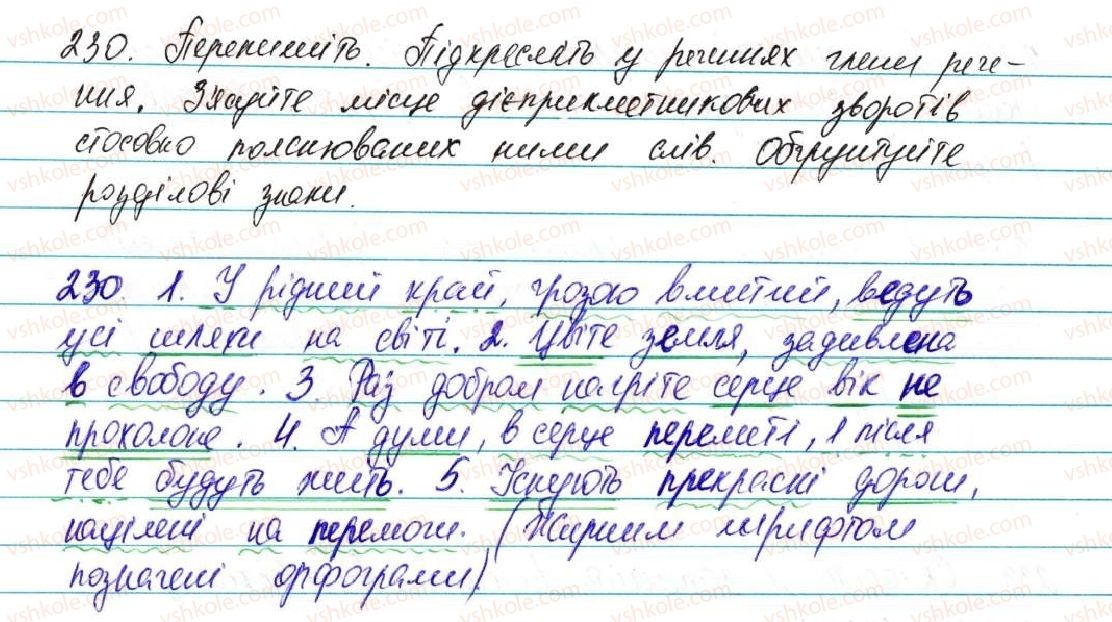 230. Перепишіть. Підкресліть у реченнях члени рече-
ння. Знайдіте місце дієприкметникових зворотів
стосовно пояснюваних ними слів. Обґрунтуйте
розділові знаки.
230. 1. У рідний край, грозою вмитий, ведуть
усі шляхи на світі. 2. Цвіте земля, задивлена
в свободу. 3. Раз добром нагріте серце вік не
прохолоне. 4. А думи, в серце перелиті, і після
тебе будуть жить. 5. Існують прекрасні дороги,
націлені на перемоги. (Жирним шрифтом
позначені орфограми)
vshkole.com